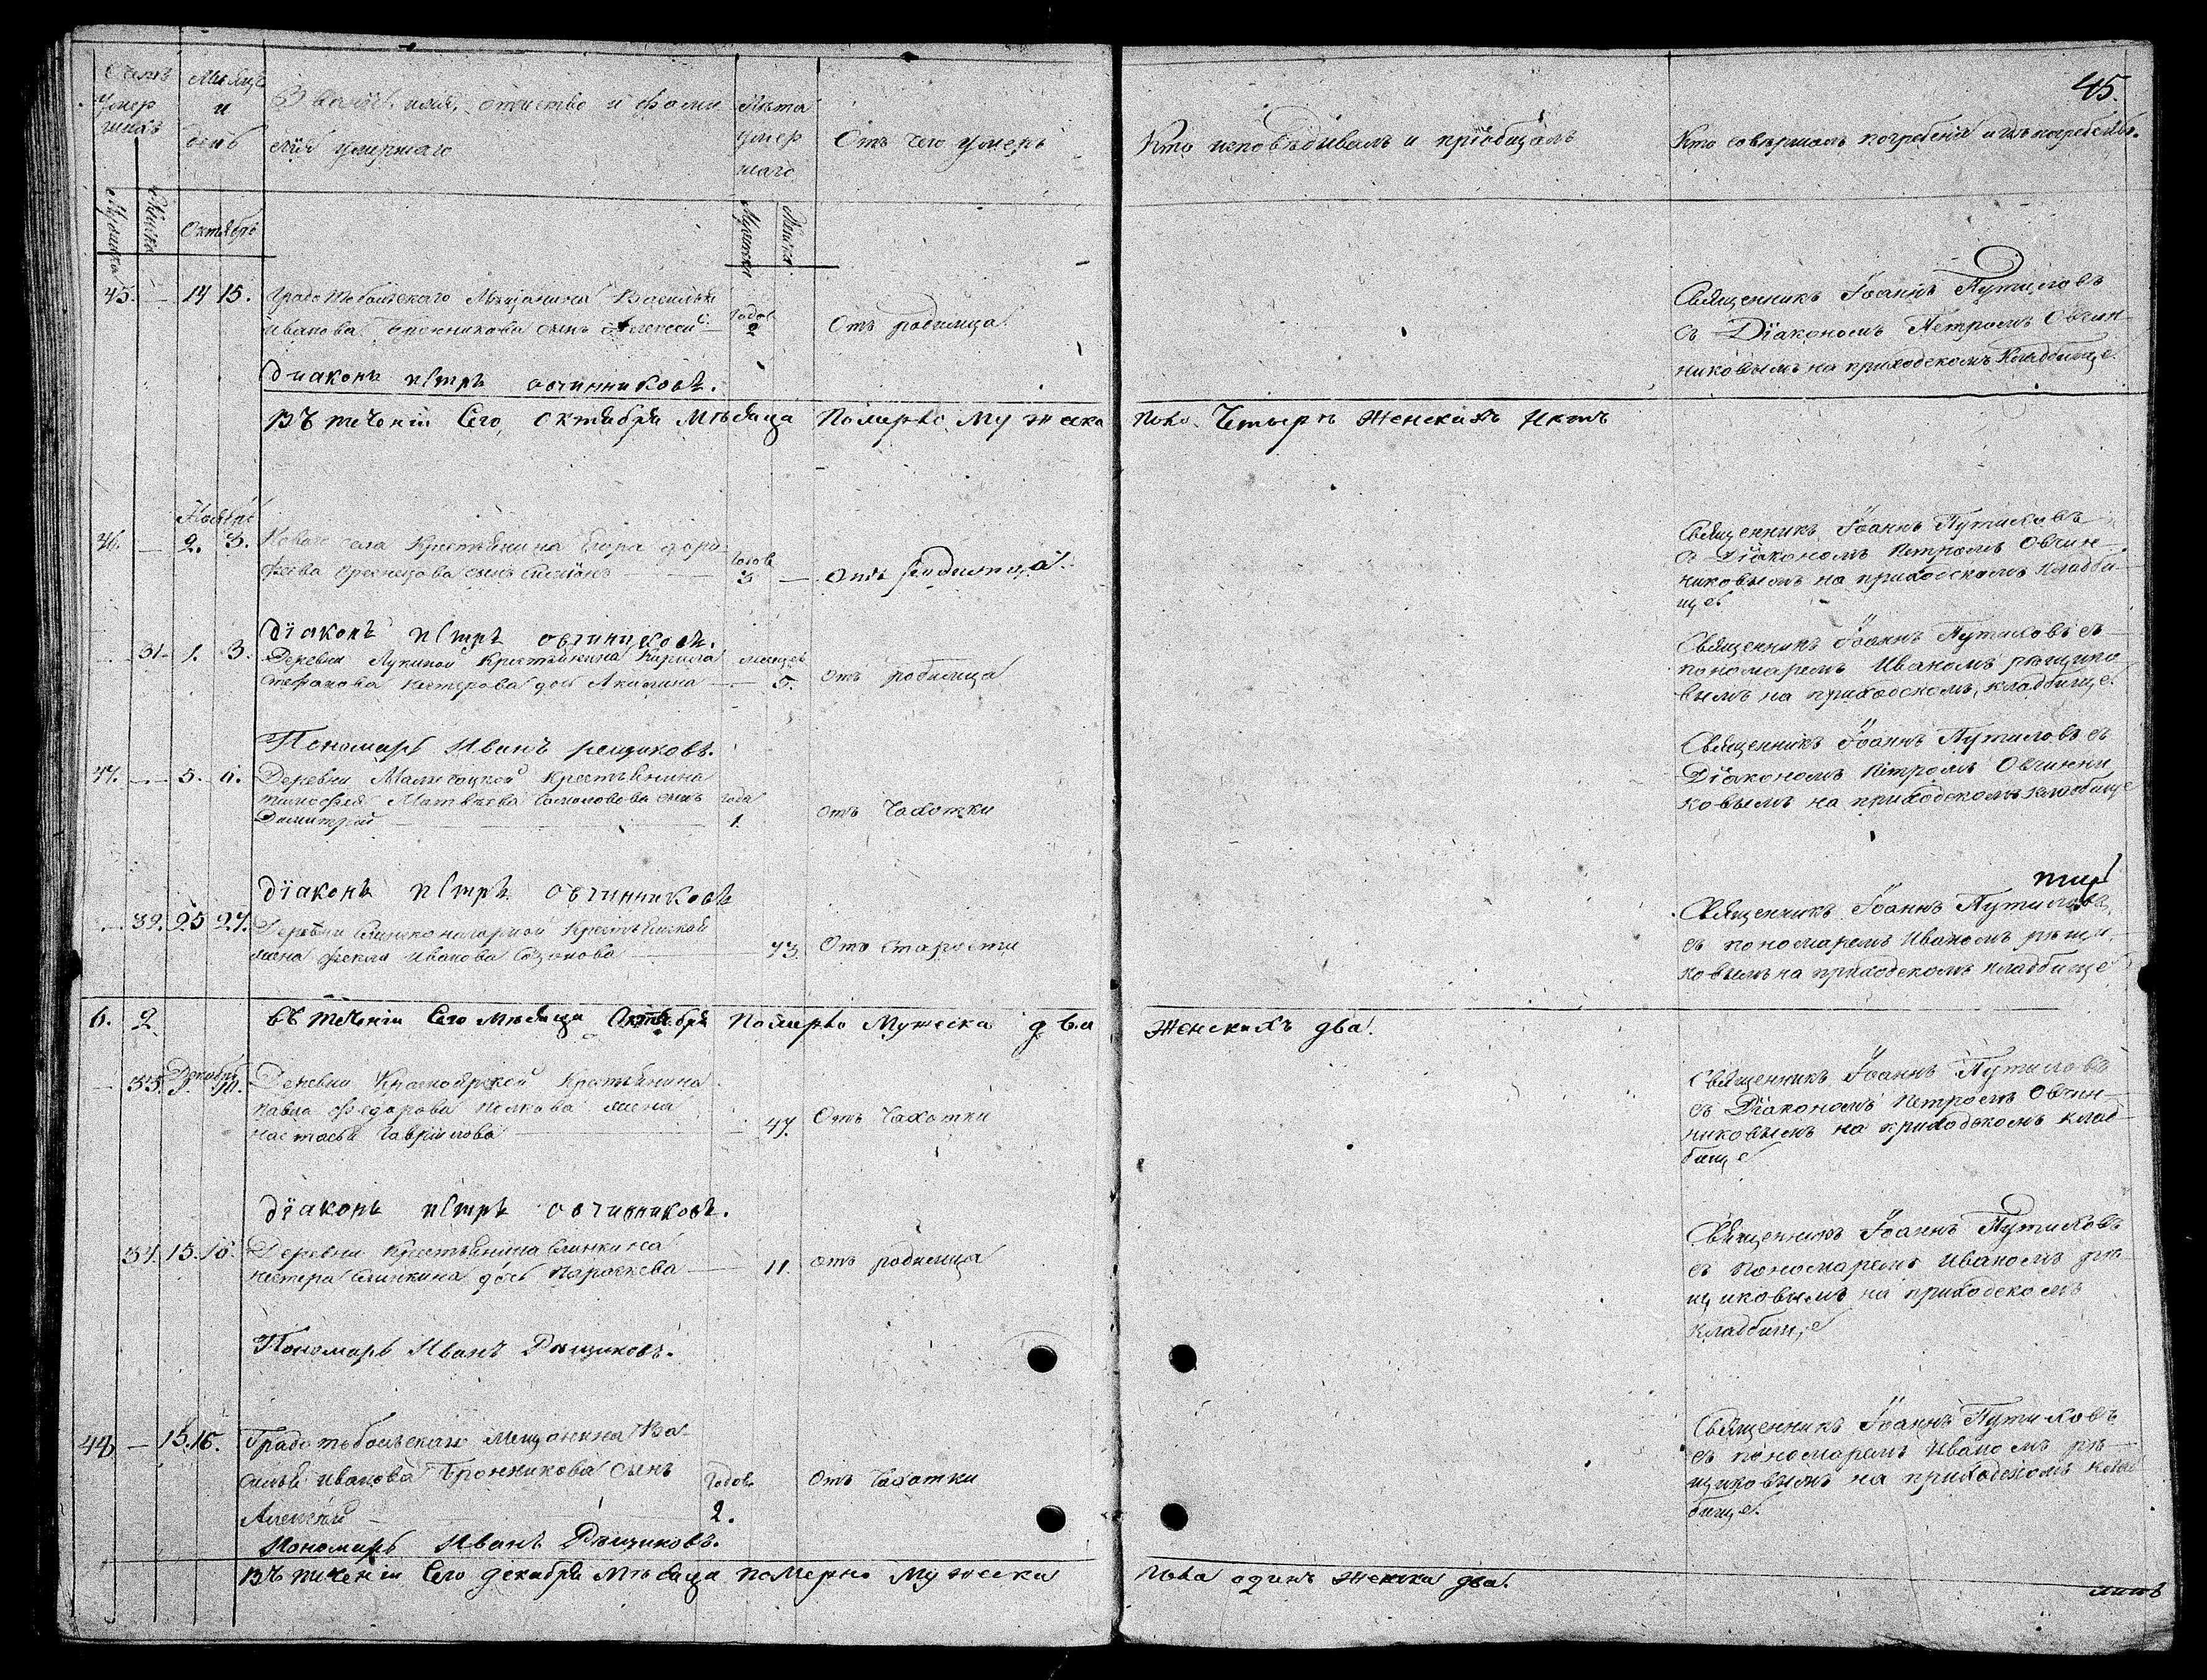 45.
Счетъ умер шихъ
Мѣсяцъ и день
Званіе, имя, отчество и фами
лія умершаго
Лѣта умер шаго
Отъ чего умеръ
Кто исповѣдывалъ и пріобщалъ
Кто совершалъ погребеніе и гдѣ погребены.
Октябрь
45. — 14 15. Градо Тобольскаго Мѣщанина Василья
Иванова Бронникова сынъ Алексей
Годов 2
Отъ родимца
Священникъ Іоаннъ Путиловъ
съ Діакономъ Петромъ Овчин
никовымъ на приходскомъ кладбище
диаконъ петръ овчинниковъ.
Въ теченіи Сего Октября Мѣсяца Померло Мужеска пола Четыре Женскихъ Нетъ
Ноябрь
46. — 2. 3. села Крестьянина Егора
сынъ
Годов 3 —
Отъ родимца
Священникъ Іоаннъ Путиловъ
съ Діакономъ Петромъ Овчин
никовымъ на приходскомъ кладби
ще
діаконъ петръ овчинниковъ.
31. 1. 3. Деревни Лукиной Крестьянина Кирила
Стефанова Нестерова дочь Акилина
месяцев 5.
Отъ родимца
Священникъ Іоаннъ Путиловъ съ
пономаремъ Иваномъ рещико
вымъ на приходскомъ кладбище
Пономарь Иванъ рещиковъ.
47. — 5. 6. Деревни Крестьянина
тимофея Матвѣева сынъ
Димитрий
года 1.
отъ Чахотки
Священникъ Іоаннъ Путиловъ съ
Діакономъ Петромъ Овчинни
ковымъ на приходскомъ кладбище
діаконъ петръ овчинниковъ
32. 25 27. Деревни Крестьянской
жена фекла Иванова
73.
Отъ Старости
Священникъ Іоаннъ Путиловъ
съ пономаремъ Иваномъ рещи
ковымъ на приходскомъ кладбище
6. 2.
въ теченіи Сего мѣсяца Октября Померло Мужеска два Женскихъ два.
Декабрь
33. 9. 10. Деревни Красноярской Крестьянина
павла Федорова жена
настасья Гаврилова
47.
Отъ Чахотки
Священникъ Іоаннъ Путиловъ
съ Діакономъ Петромъ Овчин
никовымъ на приходскомъ клад
бище
діаконъ петръ овчинниковъ.
34. 15. 16. Деревни Крестьянина Слинкина
нестера Слинкина дочь Параскева
11.
отъ родимца
Священникъ Іоаннъ Путиловъ
съ пономаремъ Иваномъ рѣ
щиковымъ на приходскомъ
кладбище
Пономарь Иванъ Рѣщиковъ.
48 — 15. 16. Градо тобольскаго Мещанина Ва
силья Иванова Бронникова сынъ
Алексей
Годов 2.
Отъ Чахотки
Священникъ Іоаннъ Путиловъ
съ пономаремъ Иваномъ рѣ
щиковымъ на приходскомъ клад
бище
Пономарь Иванъ Рѣщиковъ.
Въ теченіи Сего декабря Мѣсяца померло Мужеска пола одинъ Женска два.